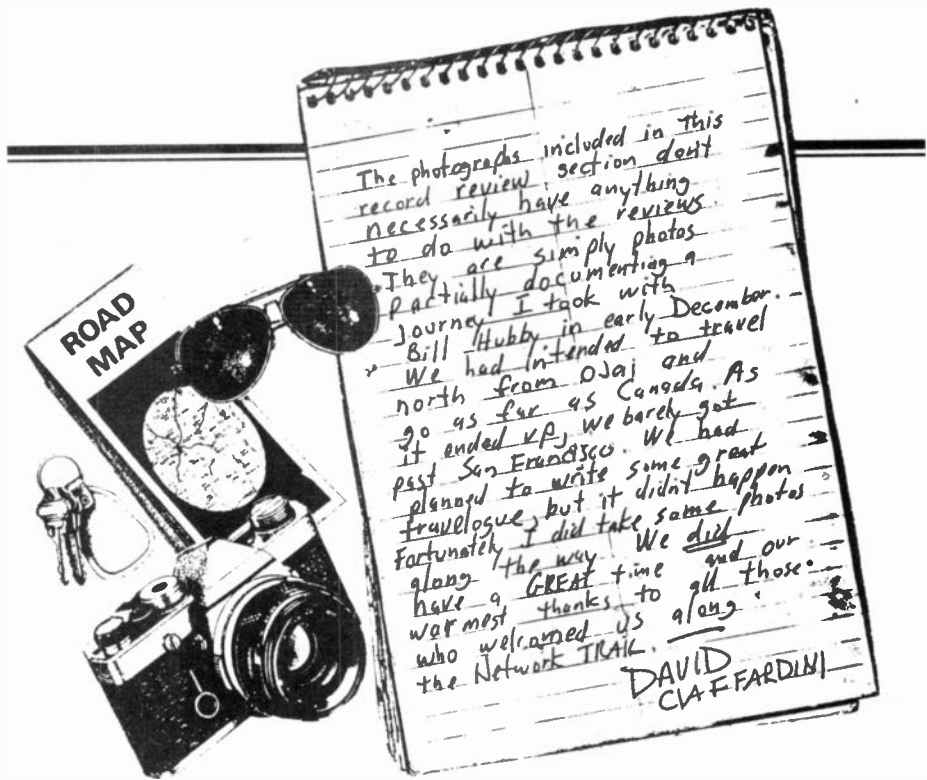 ROAD
MAP
The photographs included in this
record review section don't
necessarily have anything
to do with the reviews.
They are simply photos
partially documenting a
Journey I took with
Bill Hubby in early December.
We had intended to travel
north from OJai and
go as far as Canada. As
it ended up, we barely got
past San Francisco. We had
planned to write some great
travelogue, but it didn't happen
Fortunately I did take some photos
along the way. We did
have a GREAT time and our
warmest thanks to all those
who welcomed us along
the Network TRAIL.
DAVID
CIAFFARDINI